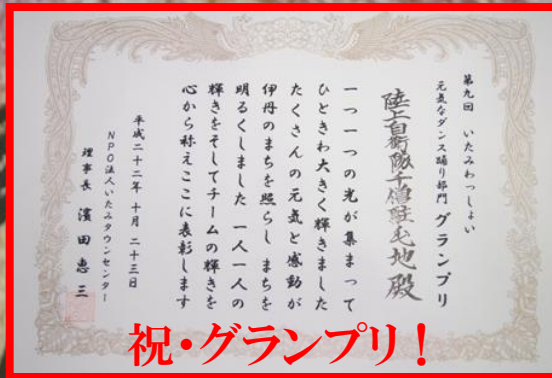 第九回 いたみわっしょい
元気なダンス踊り部門 グランプリ
陸上自衛隊千僧駐屯地殿
一つ一つの光が集まって
ひときわ大きく輝きました
たくさんの元気と感動が
伊丹のまちを照らし まちを
明るくしました 一人一人の
輝きをそしてチームの輝きを
心から称えここに表彰します
平成二十二年 十月 二十三日
NPO法人いたみタウンセンター
理事長 濱田恵三
祝・グランプリ!